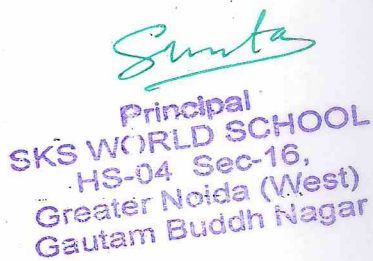 Sunita
Principal
SKS WORLD SCHOOL
HS-04 Sec-16,
Greater Noida (West)
Gautam Buddh Nagar